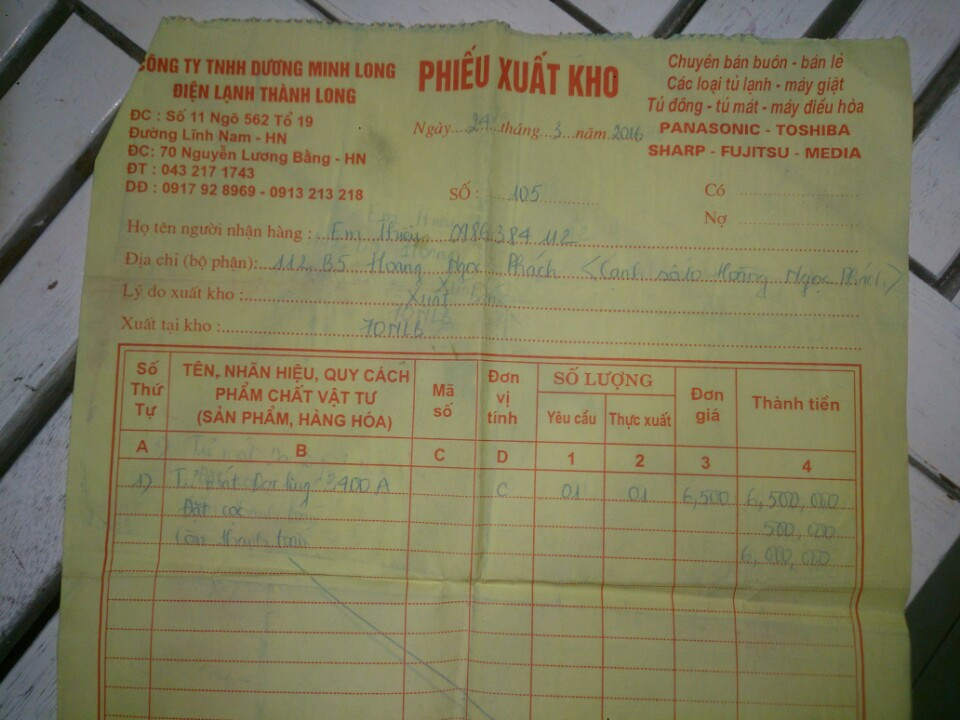 CÔNG TY TNHH DƯƠNG MINH LONG
ĐIỆN LẠNH THÀNH LONG
ĐC : Số 11 Ngõ 562 Tổ 19
Đường Lĩnh Nam - HN
ĐC: 70 Nguyễn Lương Bằng - HN
ĐT : 043 217 1743
DĐ : 0917 92 8969 - 0913 213 218
PHIẾU XUẤT KHO
Ngày 24 tháng 3 năm 2016
SỐ : 105
Chuyên bán buôn - bán lẻ
Các loại tủ lạnh - máy giặt
Tủ đông - tủ mát - máy điều hòa
PANASONIC - TOSHIBA
SHARP - FUJITSU - MEDIA
Có
Nợ
Họ tên người nhận hàng : Em 0986 384 112
Địa chỉ (bộ phận): 112 B5 Hoàng Ngọc Phách <Cạnh số 10 Hoàng Ngọc Phách>
Lý do xuất kho : Xuất
Xuất tại kho : 70NLB
Số Thứ Tự
TÊN, NHÃN HIỆU, QUY CÁCH PHẨM CHẤT VẬT TƯ (SẢN PHẨM, HÀNG HÓA)
Mã số
Đơn vị tính
SỐ LƯỢNG
Yêu cầu
Thực xuất
Đơn giá
Thành tiền
A B C D 1 2 3 4
1) Tủ Mát 400A C 01 01 6,500 6,500,000
Đặt cọc 500,000
Còn thanh toán 6,000,000